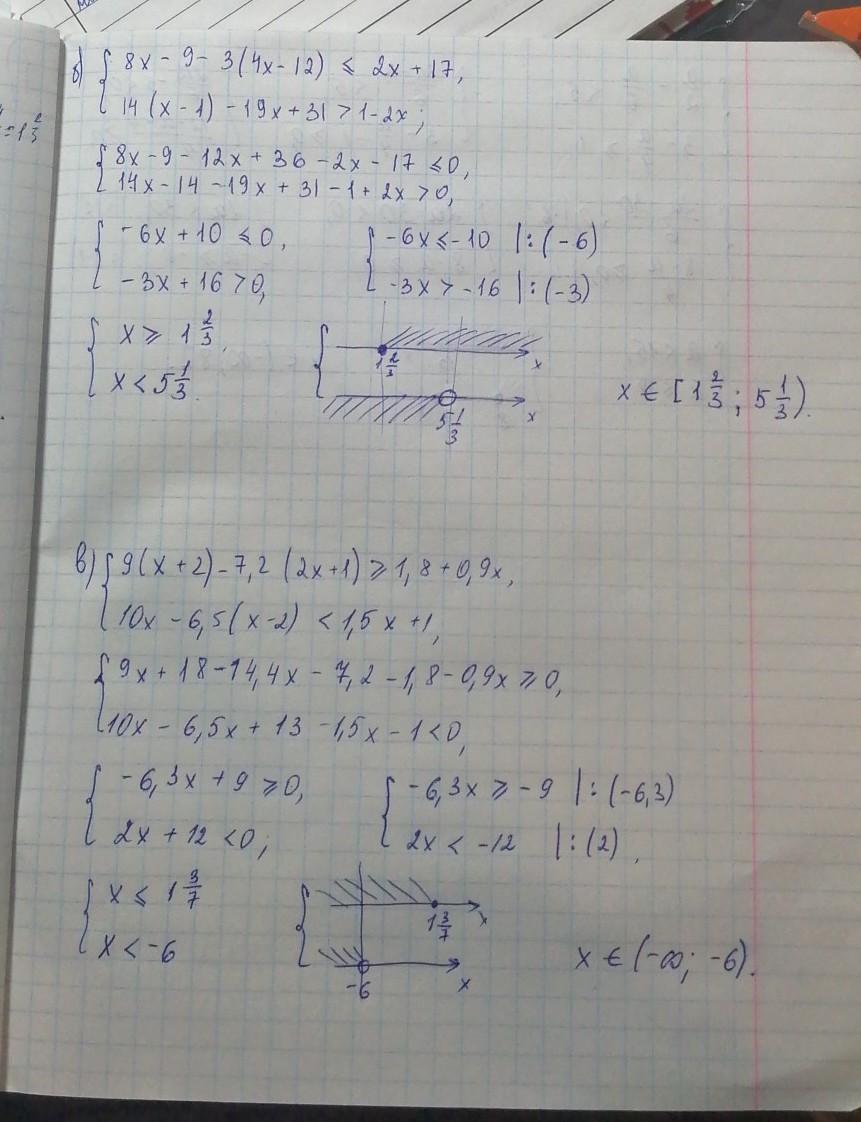 =1 2/3
б) { 8x - 9 - 3(4x - 12) ⩽ 2x + 17,
14(x - 1) - 19x + 31 > 1 - 2x;
{ 8x - 9 - 12x + 36 - 2x - 17 ⩽ 0,
14x - 14 - 19x + 31 - 1 + 2x > 0,
{ -6x + 10 ⩽ 0, { -6x ⩽ -10 |:(-6)
-3x + 16 > 0, -3x > -16 |:(-3)
{ x ⩾ 1 2/3, { 1 2/3 x
x < 5 1/3. 5 1/3 x x ∈ [1 2/3; 5 1/3).
в) { 9(x + 2) - 7,2(2x + 1) ⩾ 1,8 + 0,9x,
10x - 6,5(x - 2) < 1,5x + 1,
{ 9x + 18 - 14,4x - 7,2 - 1,8 - 0,9x ⩾ 0,
10x - 6,5x + 13 - 1,5x - 1 < 0,
{ -6,3x + 9 ⩾ 0, { -6,3x ⩾ -9 |:(-6,3)
2x + 12 < 0; 2x < -12 |:(2),
{ x ⩽ 1 3/7 { 1 3/7 x
x < -6 -6 x x ∈ (-∞; -6).